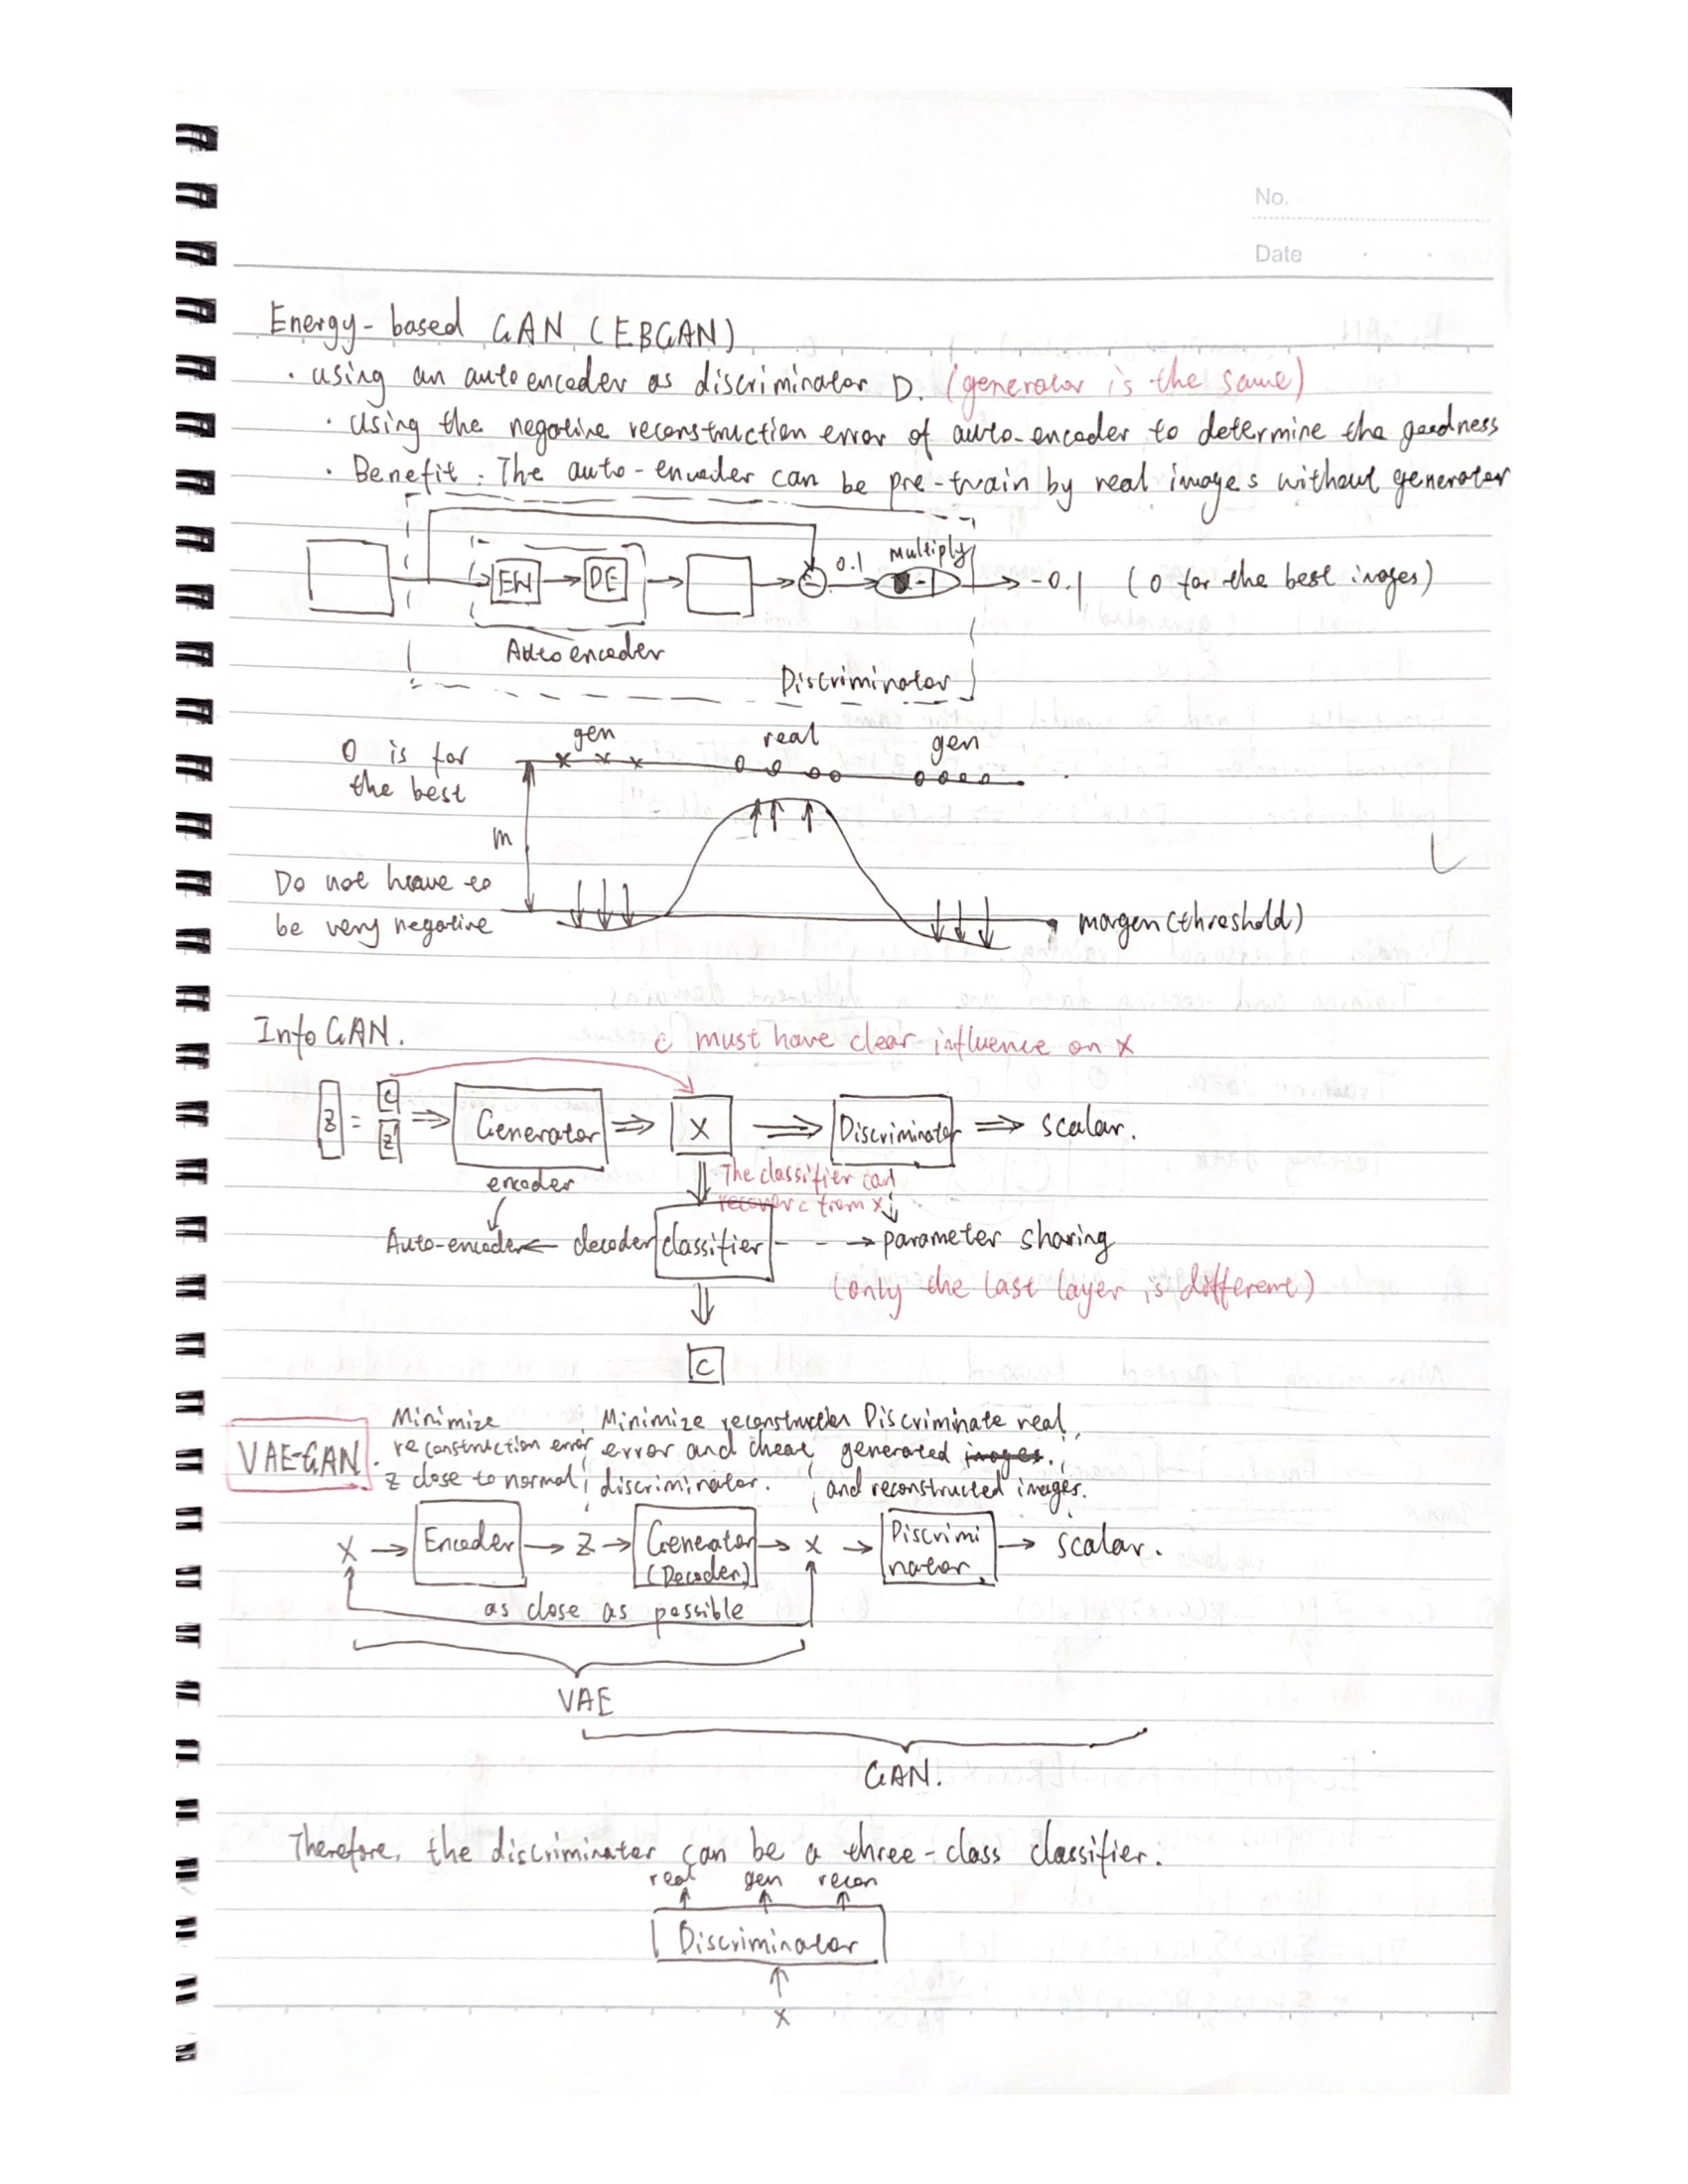 No.
Date
Energy-based GAN (EBGAN)
· using an autoencoder as discriminator D. (generator is the same)
· Using the negative reconstruction error of auto-encoder to determine the goodness
· Benefit: The auto-encoder can be pre-train by real images without generator
EN DE 0.1 multiply -1 -0.1 (0 for the best images)
Autoencoder
Discriminator
gen real gen
0 is for
the best
m
Do not have to
be very negative
margen (threshold)
InfoGAN.
c must have clear influence on x
z = c z' Generator X Discriminator scalar.
encoder
The classifier can
recover c from x
Auto-encoder decoder classifier parameter sharing
(only the last layer is different)
C
VAE-GAN.
Minimize
reconstruction error,
z close to normal
Minimize reconstruction
error and cheat
discriminator.
Discriminate real,
generated images.
and reconstructed images.
X Encoder z Generator (Decoder) x Discriminator scalar.
as close as possible
VAE
GAN.
Therefore, the discriminator can be a three-class classifier.
real gen recon
Discriminator
x